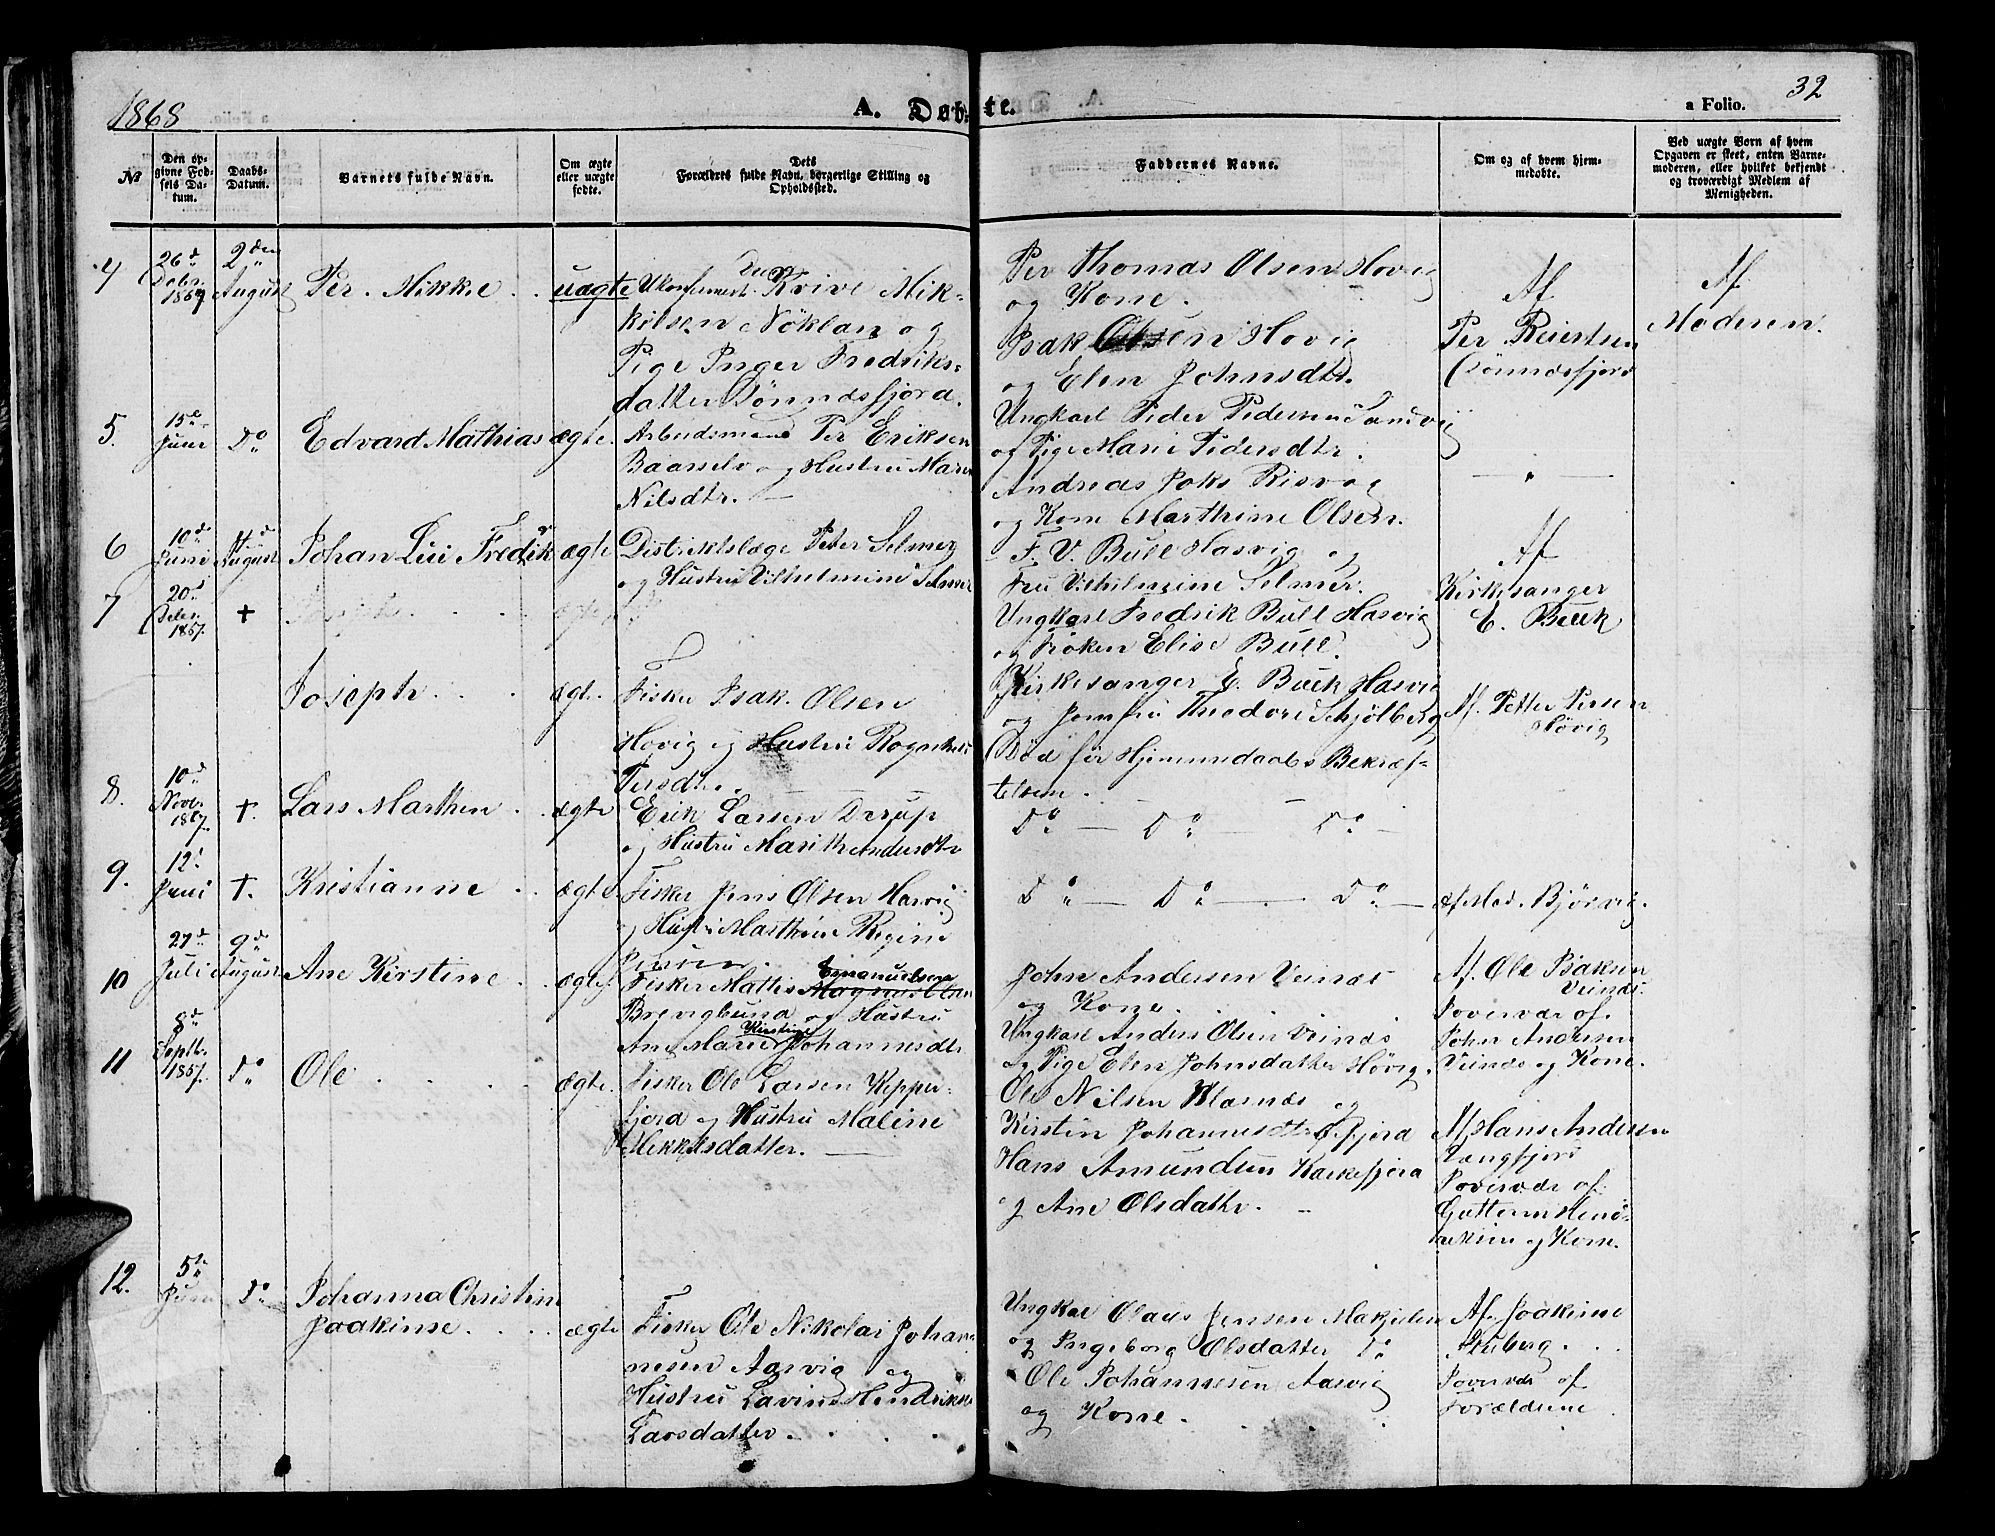 1868
A. Døbte.
a Folio.
32
No
Den opgivne Fodsels Datum.
Daabs-Datum.
Barnets fulde Navn.
Om ægte eller uægte fødte.
Dets Forældres fulde Navn, borgerlige Stilling og Opholdssted.
Faddernes Navne.
Om og af hvem hjemmedøbte.
Ved uægte Born af hvem Opgaven er skeet, enten Barnemoderen, eller hvilket bekjendt og troværdigt Medlem af Menigheden.
4
26d Debr. 1867
2den August
Per Mikkel
uægte
Ukonfirmeret Dreng Mikkelsen Nöklan og
Pige Inger Fredriks-
datter Sönndsfjord.
Per Thomas Olsen Hovig
og Kone.
Isak Olsen Hovig
og Elen Johnsdtr.
Af
Per Reiertsen
Sönndsfjord
Af
Moderen.
5.
15de Juni
Do
Edvard Mathias
ægte.
Arbeidsmand Per Eriksen
Baarselv og Hustru Maren
Nilsdtr.
Ungkarl Peder Pedersen Sandvig
og Pige Marie Pedersdtr.
Andreas Joks Risvog
og Kone Marthine Olsen.
6
10d Juni
4d August
Johan Lui Fredrik
ægte
Distriktslæge Peter Selmer
og Hustru Vilhelmine Selmer
F. V. Bull Hasvig og
Fru Vilhelmine Selmer.
Ungkarl Fredrik Bull Hasvig
og Fröken Elise Bull.
Kirkesanger E. Buck Hasvig
og Jomfru Theodore Schjölberg
Af
Kirkesanger
E. Buck
7
20d Debr. 1867.
+
Joseph
ægte.
Fisker Isak Olsen
Hovig og Hustru Ragnhild
Persdtr.
(Död før Hjemmedaabs Bekræf-
telsen.
Af Petter Persen
Hövig
8.
10d Novbr. 1867.
+.
Lars Marthen
ægte
Erik Larsen Darup
og Hustru Marith Andersdtr
Do — Do — Do —
9.
12d Juni
+.
Kristianne
ægte
Fisker Jens Olsen Hasvig
og Hustru Marthine Regine
Do — Do — Do —
af Mad. Bjørvig.
10
27d Juli
9d August
Ane Kirstine
ægte
Fisker Mattis Emanuelsen
Brevigbund og Hustru
Ane Marie Kirstine Johannesdtr
John Andersen Veinæs
og Kone.
Ungkarl Anders Olsen Veinæs
og Pige Elen Johnsdatter Hövig.
Af Ole Isaksen
Veinæs.
Overvær af
John Andersen
Veinæs og Kone.
11
8d Septbr. 1867.
Do
Ole
ægte.
Fisker Ole Larsen Kepper-
fjord og Hustru Maline
Mikkelsdatter.
Ole Nilsen Klarnæs og
Kirstin Johannesdtr
Hans Amundsen Karkefjord
og Ane Olsdatter.
Af Hans Andersen
Langfjord
Overvær af
12.
5te Juni
Do
Johanna Christine
Joakime.
ægte
Fisker Ole Nikolai Johan-
nesen Aarvig og
Hustru Lavine Hendrikke
Larsdatter.
Ungkarl Olaus Jensen
og Ingeborg Olsdatter Do
Ole Johannesen Aarvig
og Kone.
Af Joakime
Overvær af
Forældrene